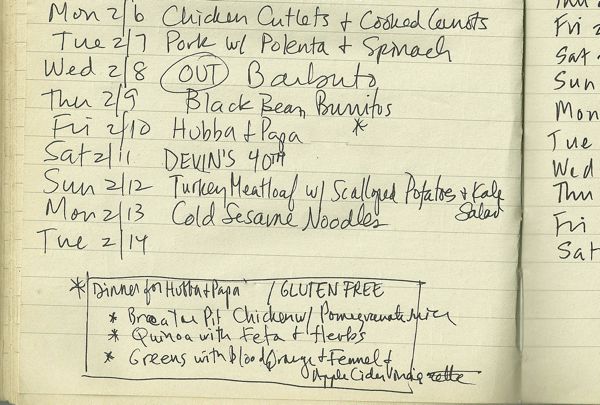 Mon 2/6 Chicken Cutlets + Cooked Carrots
Tue 2/7 Pork w/ Polenta + Spinach
Wed 2/8 OUT Barbuto
Thu 2/9 Black Bean Burritos
Fri 2/10 Hubba + Papa *
Sat 2/11 DEVIN'S 40TH
Sun 2/12 Turkey Meatloaf w/ Scalloped Potatoes + Kale
Salad
Mon 2/13 Cold Sesame Noodles
Tue 2/14
* Dinner for Hubba + Papa / GLUTEN FREE
* Chicken w/ Pomegranate
* Quinoa with Feta + Herbs
* Greens with Blood Orange + Fennel +
Apple Cider
Thu
Fri
Sat
Sun
Mon
Tue
Wed
Thu
Fri
Sat